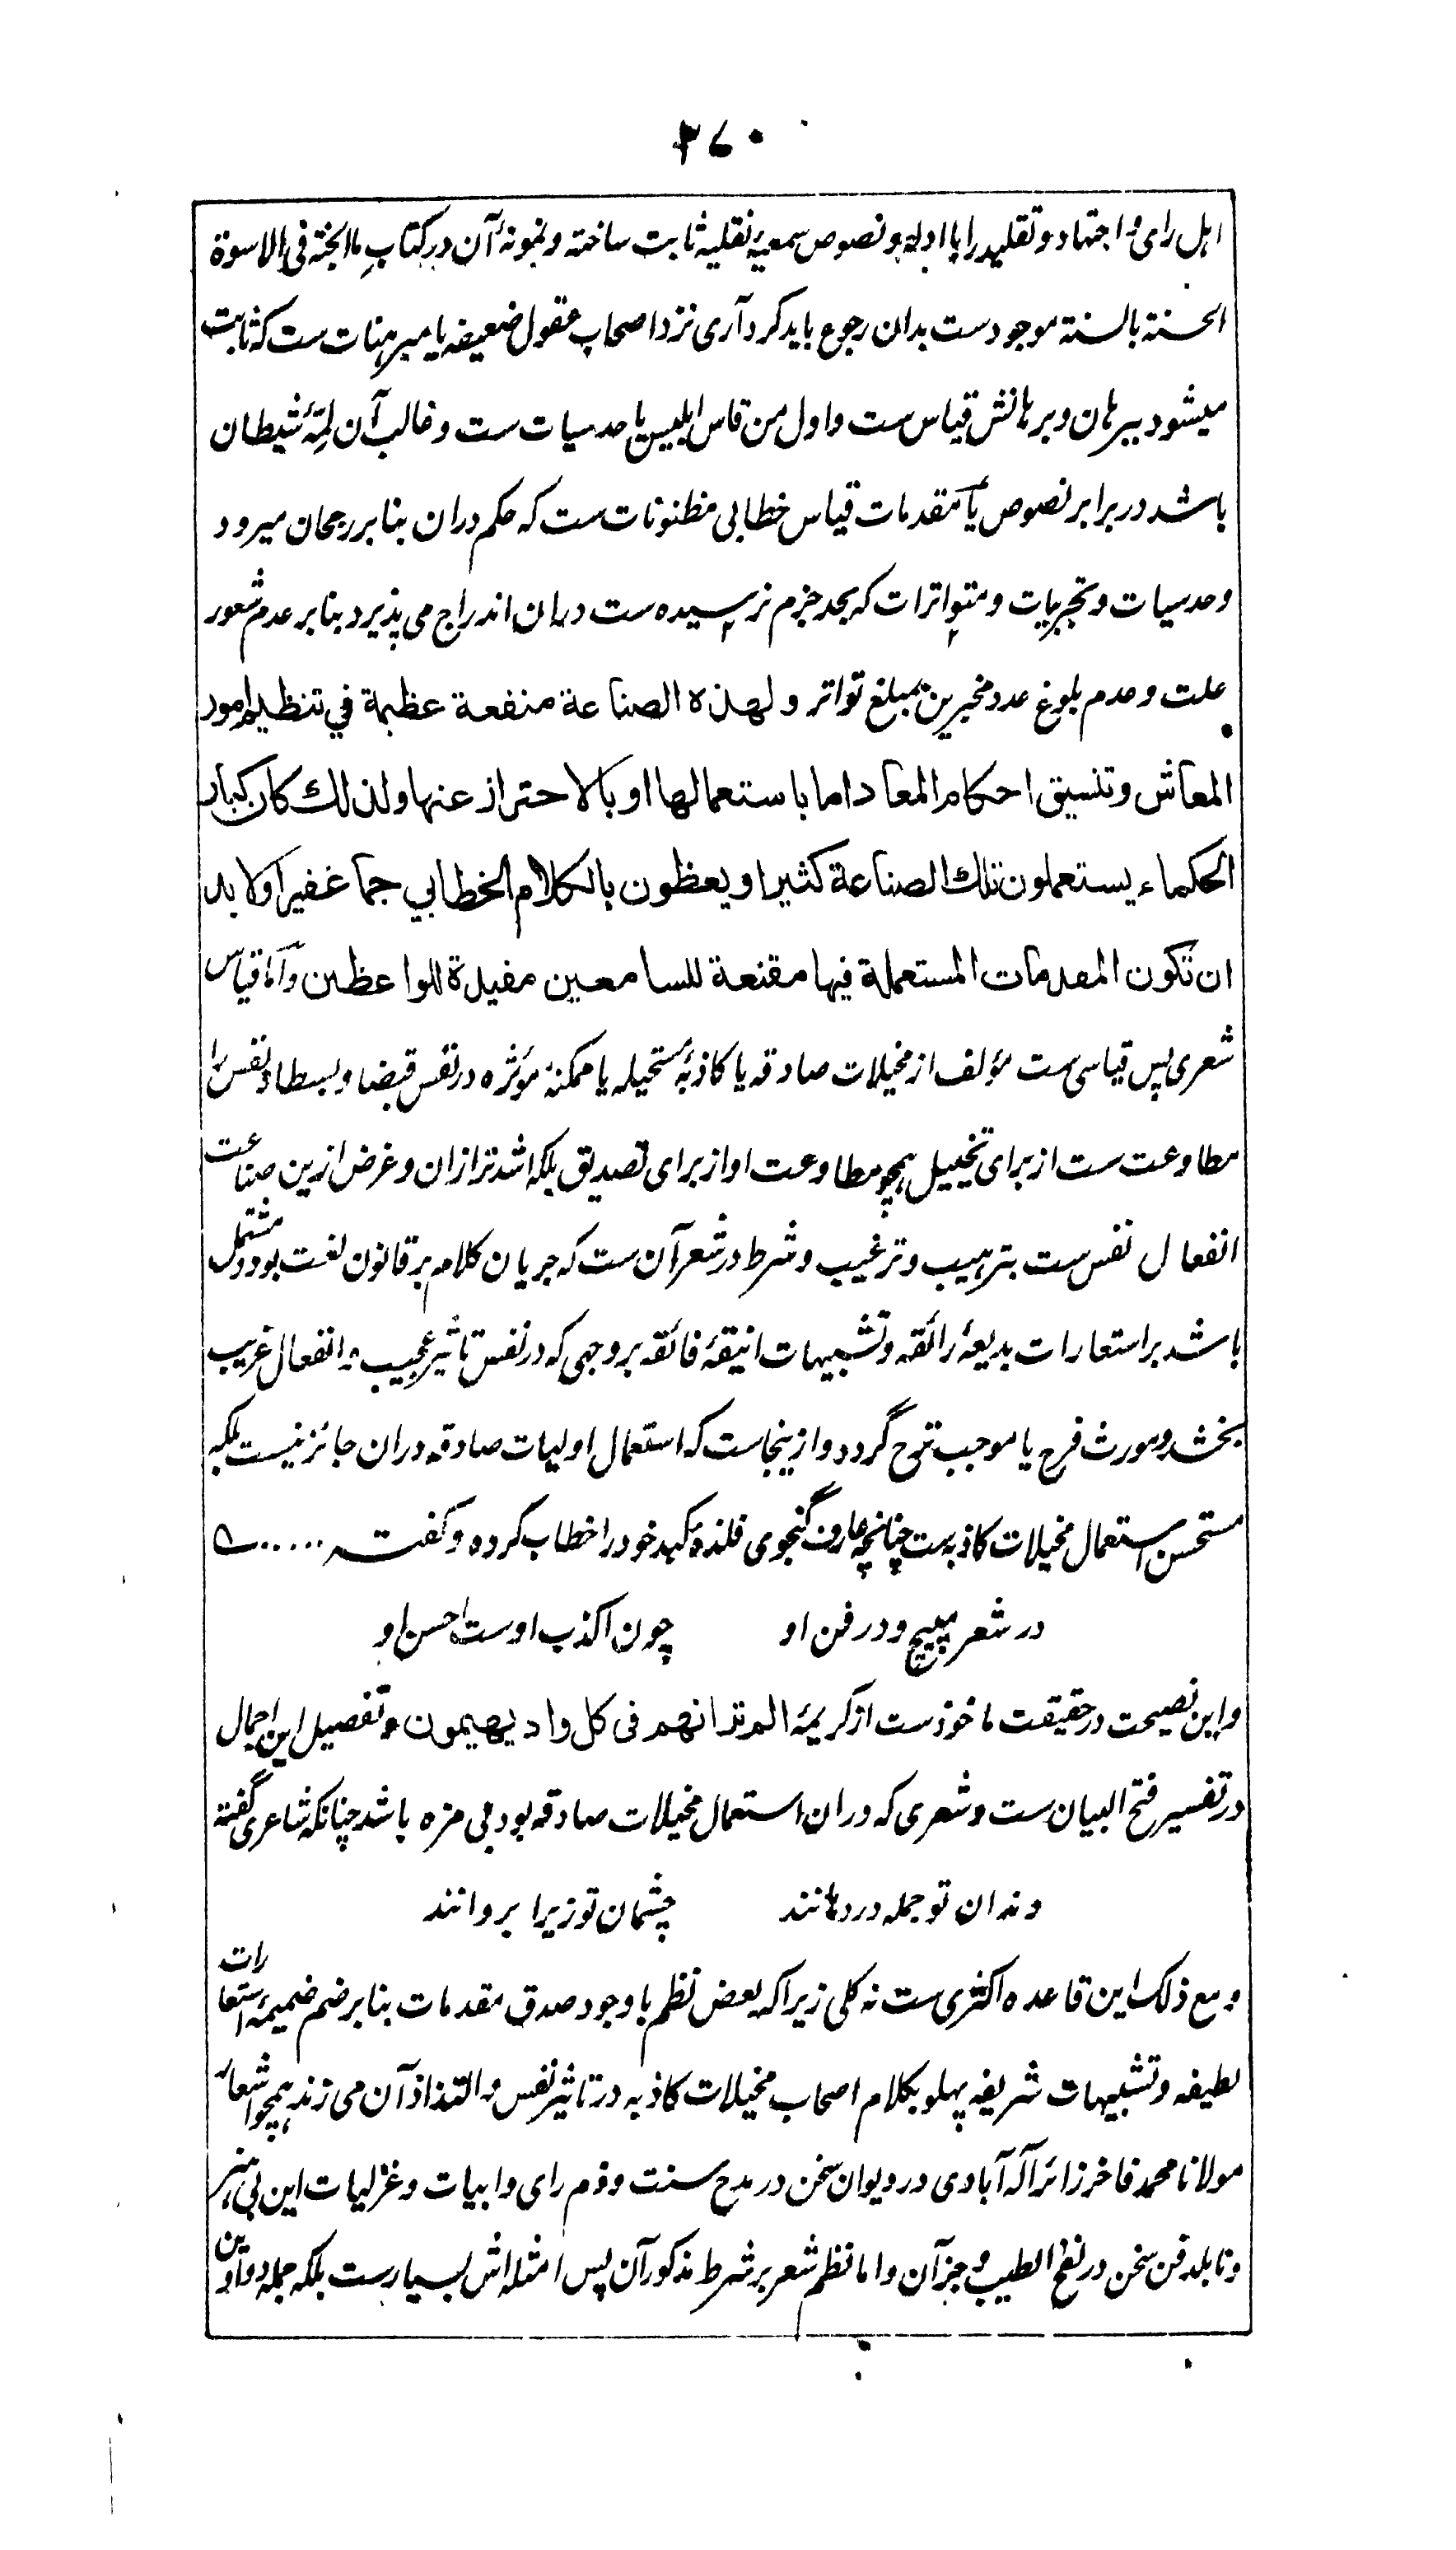 ۳۷۰
اہل رای و اجتہاد و تقلید را با ادلہ و نصوص سمعیہ نقلیہ ثابت ساختہ و نمونۂ آن در کتاب ما الجنۃ فی الاسوۃ
الحسنۃ بالسنۃ موجودست بدان رجوع باید کرد آری نزد اصحاب عقول ضعیفہ یا مبرہنات ست کہ ثابت
میشود ببرہان و برہانش قیاس ست و اول من قاس ابلیس یا حدسیات ست و غالب آن لمّۂ شیطان
باشد در برابر نصوص یا مقدمات قیاس خطابی مظنونات ست کہ حکم دران بنابر رجحان میرود
و حدسیات و تجربیات و متواترات کہ بحد جزم نرسیدہ ست دران اندراج می پذیرد بنابر عدم شعور
علت و عدم بلوغ عدد مخبرین بمبلغ تواتر ولهذه الصناعة منفعة عظيمة في تنظيم امور
المعاش وتنسيق احكام المعاد اما باستعمالها او بالاحتراز عنها ولذلك كان كبار
الحكماء يستعملون تلك الصناعة كثيرا ويعظون بالكلام الخطابي جما غفيرا ولا بد
ان تكون المقدمات المستعملة فيها مقنعة للسامعين مفيدة للواعظين و اما قیاس
شعری پس قیاسی ست مؤلف از مخیلات صادقہ یا کاذبۂ مستحیلہ یا ممکنۂ مؤثرہ در نفس قبضا و بسطا و نفس را
مطاوعت ست از برای تخییل ہمچو مطاوعت او از برای تصدیق بلکہ اشد تر ازان و غرض ازین صناعت
انفعال نفس ست بترہیب و ترغیب و شرط در شعر آن ست کہ جریان کلام بر قانون لغت بود و مشتمل
باشد بر استعارات بدیعۂ رائقہ و تشبیہات انیقۂ فائقہ بروجہی کہ در نفس تاثیر عجیب و انفعال غریب
بخشد و مورث فرح یا موجب ترح گردد و ازینجاست کہ استعمال اولیات صادقہ دران جائز نیست بلکہ
مستحسن استعمال مخیلات کاذبہ ست چنانچہ عارف گنجوی فلذۂ کبد خود را خطاب کردہ و گفتہ ......
در شعر مپیچ و در فن او چون اکذب اوست احسن او
و این نصیحت در حقیقت ماخوذست از کریمۂ الم تر انهم فی کل واد یهیمون و تفصیل این اجمال
در تفسیر فتح البیان ست و شعری کہ دران استعمال مخیلات صادقہ بود بی مزہ باشد چنانکہ شاعری گفتہ
دندان تو جملہ در دہانند چشمان تو زیر ابروانند
و مع ذلک این قاعدہ اکثری ست نہ کلی زیرا کہ بعض نظم با وجود صدق مقدمات بنابر ضم ضمیمۂ استعارات
لطیفہ و تشبیہات شریفہ پہلو بکلام اصحاب مخیلات کاذبہ در تاثیر نفس و التذاذ آن می زند ہمچو اشعار
مولانا محمد فاخر زائر آلہ آبادی در دیوان سخن در مدح سنت و ذم رای و ابیات و غزلیات این بی ہنر
و نابلد فن سخن در نفح الطیب و جز آن و اما نظم شعر بر شرط مذکور آن پس امثلہ اش بسیارست بلکہ جملہ دواوین